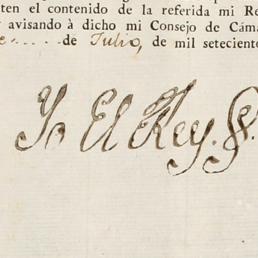 ten el contenido de la referida mi Re
avisando à dicho mi Consejo de Cáma
de Julio, de mil seteciente
Yo El Rey.